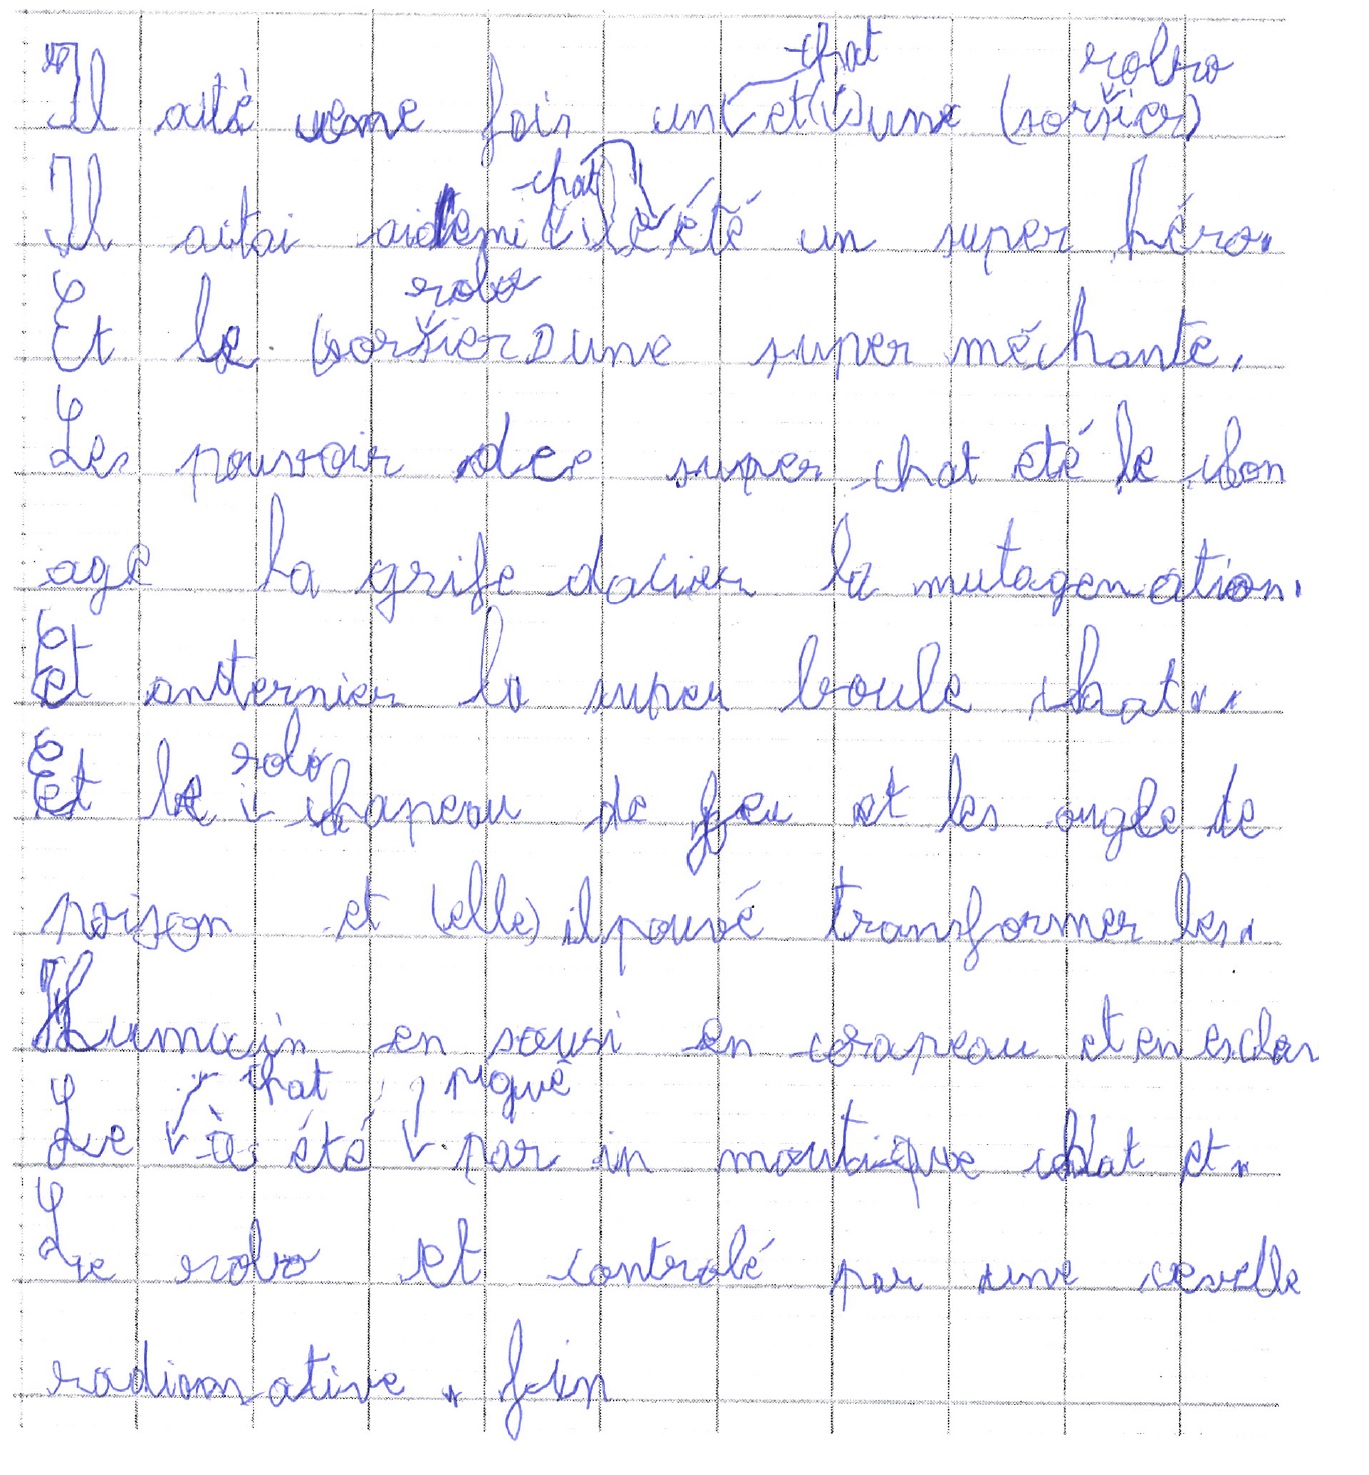 chat robo
Il aité une fois un et (s) une (sorsier)
Il aitai aidemi chat (il é) été un super héro.
robo
Et le (sorsier) une super méchante.
Les pouvoir des super chat eté le bon
age la grife dacier la mutagenation.
Et anternier la super boule chat.
robo
Et le chapeau de feu et les ongle de
poison et (elle) il pouvé transformer les.
Humain en souri en crapeau et en esclav
chat piqué
Le à été par in moustique chat et.
Le robo et contrôlé par une cervelle
radion ative. fin